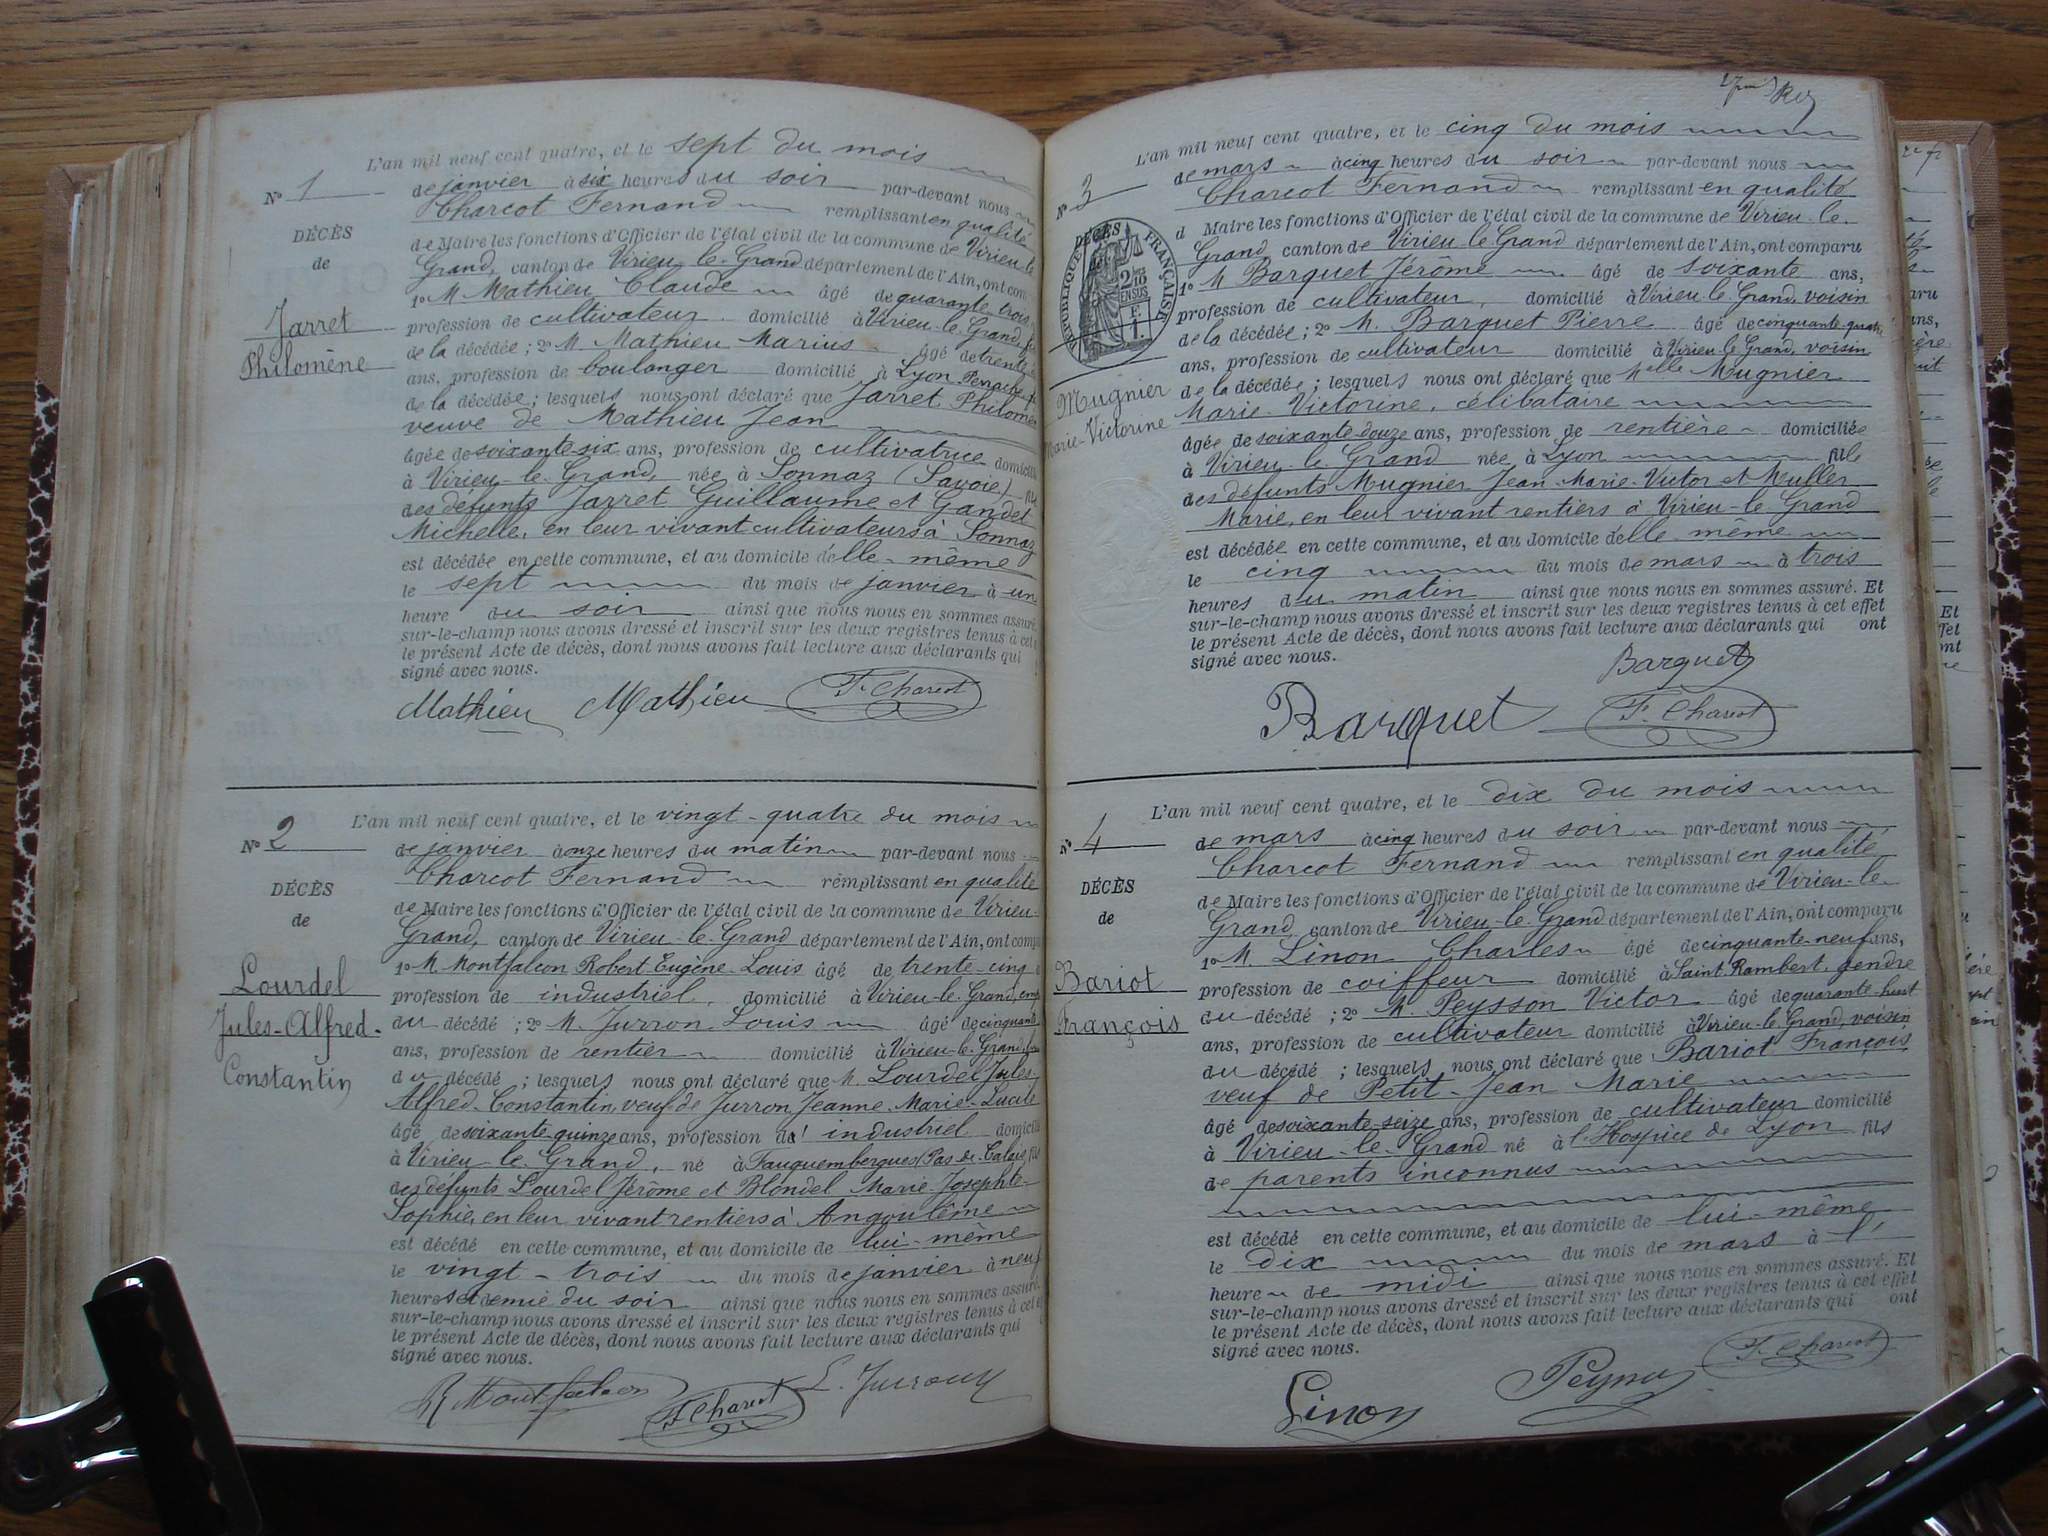 L'an mil neuf cent quatre, et le sept du mois
de janvier à six heures du soir par-devant nous
Charcot Fernand remplissant en qualité
de Maire les fonctions d'Officier de l'état civil de la commune de Virieu-le
Grand, canton de Virieu-le-Grand département de l'Ain, ont com
1º M Mathieu Claude âgé de quarante trois
profession de cultivateur. domicilié à Virieu-le-Grand,
de la décédée; 2º M. Mathieu Marius âgé de trente
ans, profession de boulanger domicilié à Lyon Perrache
de la décédée; lesquels nous ont déclaré que Jarret Philomè
veuve de Mathieu Jean
âgée de soixante-six ans, profession de cultivatrice domicili
à Virieu-le-Grand, née à Sonnaz (Savoie) fil
des défunts Jarret Guillaume et Gandet
Michelle, en leur vivant cultivateurs à Sonnaz
est décédée en cette commune, et au domicile d'elle-même
le sept du mois de janvier à un
heure du soir ainsi que nous nous en sommes assuré
sur-le-champ nous avons dressé et inscrit sur les deux registres tenus à cet
le présent Acte de décès, dont nous avons fait lecture aux déclarants qui
signé avec nous.
Mathieu Mathieu F. Charcot
Nº 1
DÉCÈS
de
Jarret
Philomène
L'an mil neuf cent quatre, et le vingt-quatre du mois
de janvier à onze heures du matin par-devant nous
Charcot Fernand remplissant en qualité
de Maire les fonctions d'Officier de l'état civil de la commune de Virieu-
Grand, canton de Virieu-le-Grand département de l'Ain, ont comp
1º M Montfalcon Robert Eugène-Louis âgé de trente-cinq
profession de industriel, domicilié à Virieu-le-Grand,
du décédé; 2º M. Jurron Louis âgé de cinquante
ans, profession de rentier domicilié à Virieu-le-Grand
du décédé; lesquels nous ont déclaré que M. Lourdel Jules-
Alfred-Constantin, veuf de Jurron Jeanne-Marie-Lucile
âgé de soixante-quinze ans, profession d' industriel domicili
à Virieu-le-Grand, né à Fauquembergues (Pas-de-Calais) fils
des défunts Lourdel Jérôme et Blondel Marie-Josephte-
Sophie, en leur vivant rentiers à Angoulême
est décédé en cette commune, et au domicile de lui-même
le vingt-trois du mois de janvier à neuf
heures et demie du soir ainsi que nous nous en sommes assuré.
sur-le-champ nous avons dressé et inscrit sur les deux registres tenus à cet
le présent Acte de décès, dont nous avons fait lecture aux déclarants qui
signé avec nous.
R Montfalcon F. Charcot L. Jurron
Nº 2
DÉCÈS
de
Lourdel
Jules-Alfred-
Constantin
L'an mil neuf cent quatre, et le cinq du mois
de mars à cinq heures du soir par-devant nous
Charcot Fernand remplissant en qualité
d Maire les fonctions d'Officier de l'état civil de la commune de Virieu-le-
Grand canton de Virieu-le-Grand département de l'Ain, ont comparu
1º M Barquet Jérôme âgé de soixante ans,
profession de cultivateur, domicilié à Virieu-le-Grand, voisin
de la décédée; 2º M. Barquet Pierre âgé de cinquante-quatre
ans, profession de cultivateur domicilié à Virieu-le-Grand, voisin
de la décédée; lesquels nous ont déclaré que Melle Mugnier
Marie-Victorine, célibataire
âgée de soixante-douze ans, profession de rentière domiciliée
à Virieu-le-Grand née à Lyon fille
des défunts Mugnier Jean-Marie-Victor et Muller
Marie, en leur vivant rentiers à Virieu-le-Grand
est décédée en cette commune, et au domicile d'elle-même
le cinq du mois de mars à trois
heures du matin ainsi que nous nous en sommes assuré. Et
sur-le-champ nous avons dressé et inscrit sur les deux registres tenus à cet effet
le présent Acte de décès, dont nous avons fait lecture aux déclarants qui ont
signé avec nous.
Barquet
Barquet F. Charcot
Nº 3
DÉCÈS
de
RÉPUBLIQUE FRANÇAISE
2/10 EN SUS
Mugnier
Marie-Victorine
L'an mil neuf cent quatre, et le dix du mois
de mars à cinq heures du soir par-devant nous
Charcot Fernand remplissant en qualité
de Maire les fonctions d'Officier de l'état civil de la commune de Virieu-le-
Grand canton de Virieu-le-Grand département de l'Ain, ont comparu
1º M. Linon Charles âgé de cinquante-neuf ans,
profession de coiffeur domicilié à Saint Rambert, gendre
du décédé; 2º M. Peysson Victor âgé de quarante-huit
ans, profession de cultivateur domicilié à Virieu-le-Grand, voisin
du décédé; lesquels nous ont déclaré que Bariot François
veuf de Petit-Jean Marie
âgé de soixante-seize ans, profession de cultivateur domicilié
à Virieu-le-Grand né à l'Hospice de Lyon fils
de parents inconnus
est décédé en cette commune, et au domicile de lui-même
le dix du mois de mars à l'
heure de midi ainsi que nous nous en sommes assuré. Et
sur-le-champ nous avons dressé et inscrit sur les deux registres tenus à cet effet
le présent Acte de décès, dont nous avons fait lecture aux déclarants qui ont
signé avec nous.
Linon F. Charcot
Nº 4
DÉCÈS
de
Bariot
François